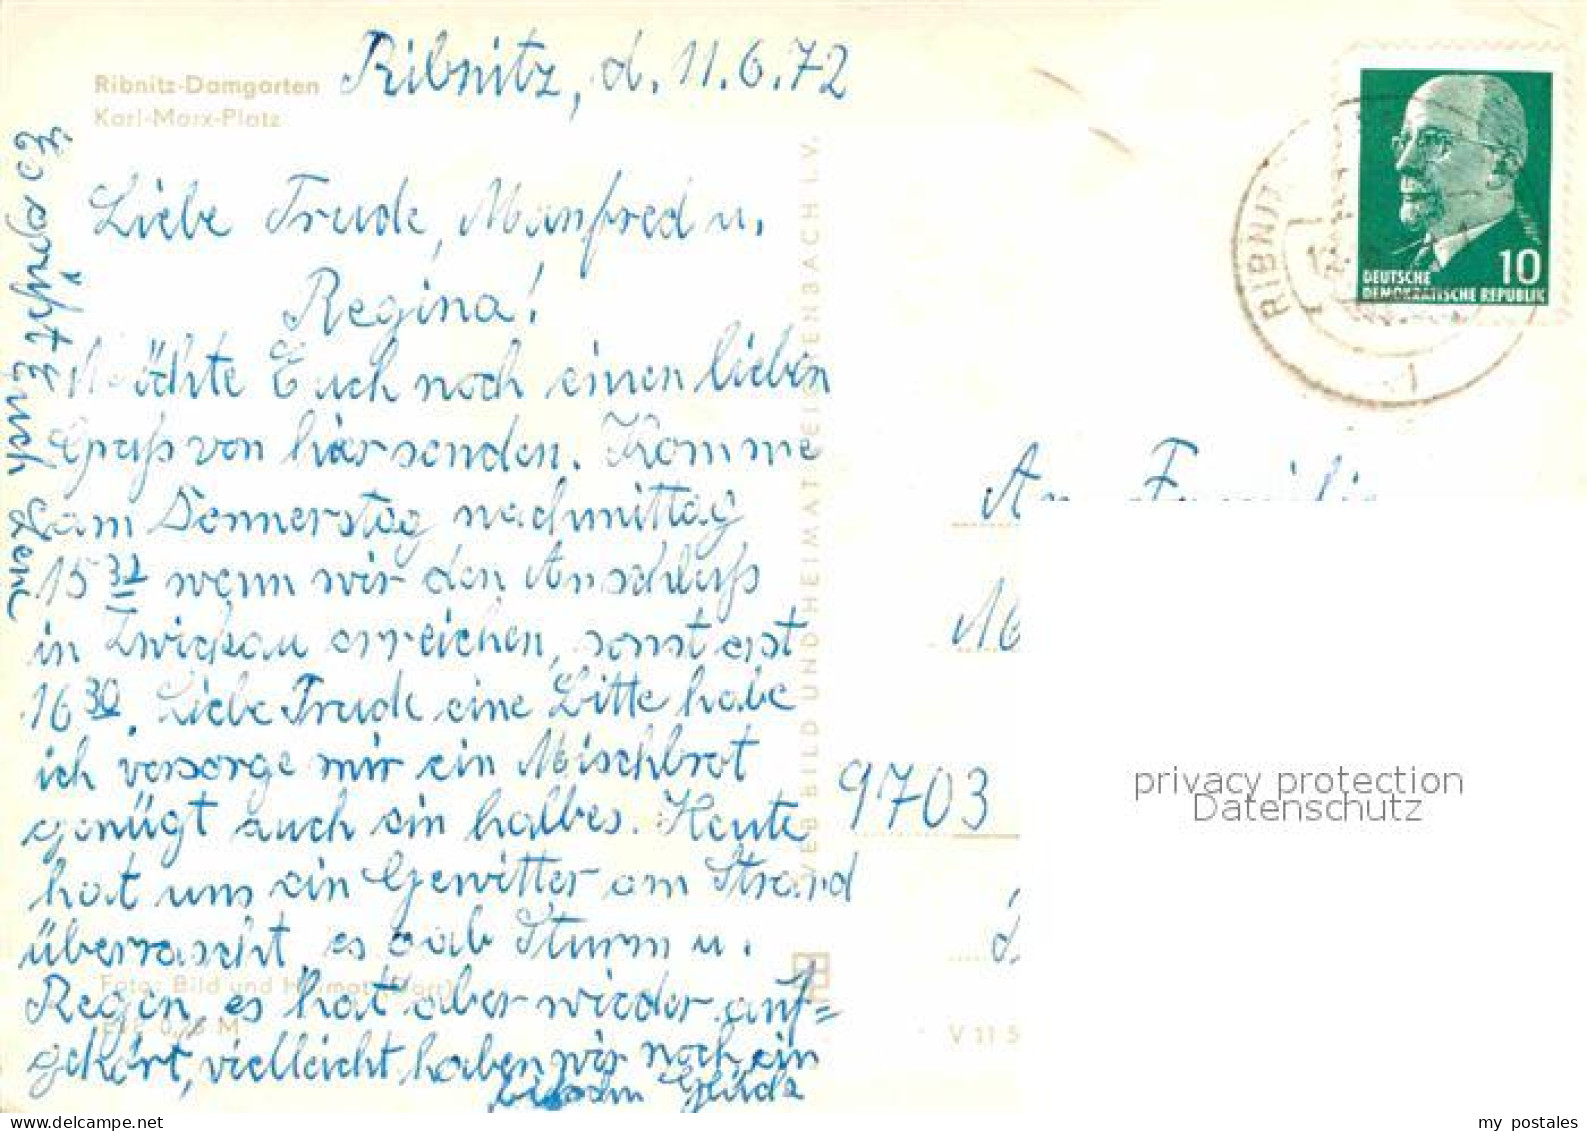 Ribnitz-Damgarten
Karl-Marx-Platz
Ribnitz, d. 11.6.72
Liebe Trude, Manfred u.
Regina!
Möchte Euch noch einen lieben
Gruß von hier senden. Komme
am Donnerstag nachmittag
15 32 wenn wir den Anschluß
in Zwickau erreichen, sonst erst
16 30. Liebe Trude eine Bitte habe
ich versorge mir ein Mischbrot
genügt auch ein halbes. Heute
hat uns ein Gewitter am Strand
überrascht, es gab Sturm u.
Regen, es hat aber wieder auf=
gekärt, vielleicht haben wir noch ein
bisschn Glück
Es grüßt Euch
Foto: Bild und Heimat
0,25 M
VEB BILD UND HEIMAT REICHENBACH I. V.
V 11 5
RIBNITZ
10
DEUTSCHE
DEMOKRATISCHE REPUBLIK
An Familie
9703
privacy protection
Datenschutz
my postales
www.delcampe.net